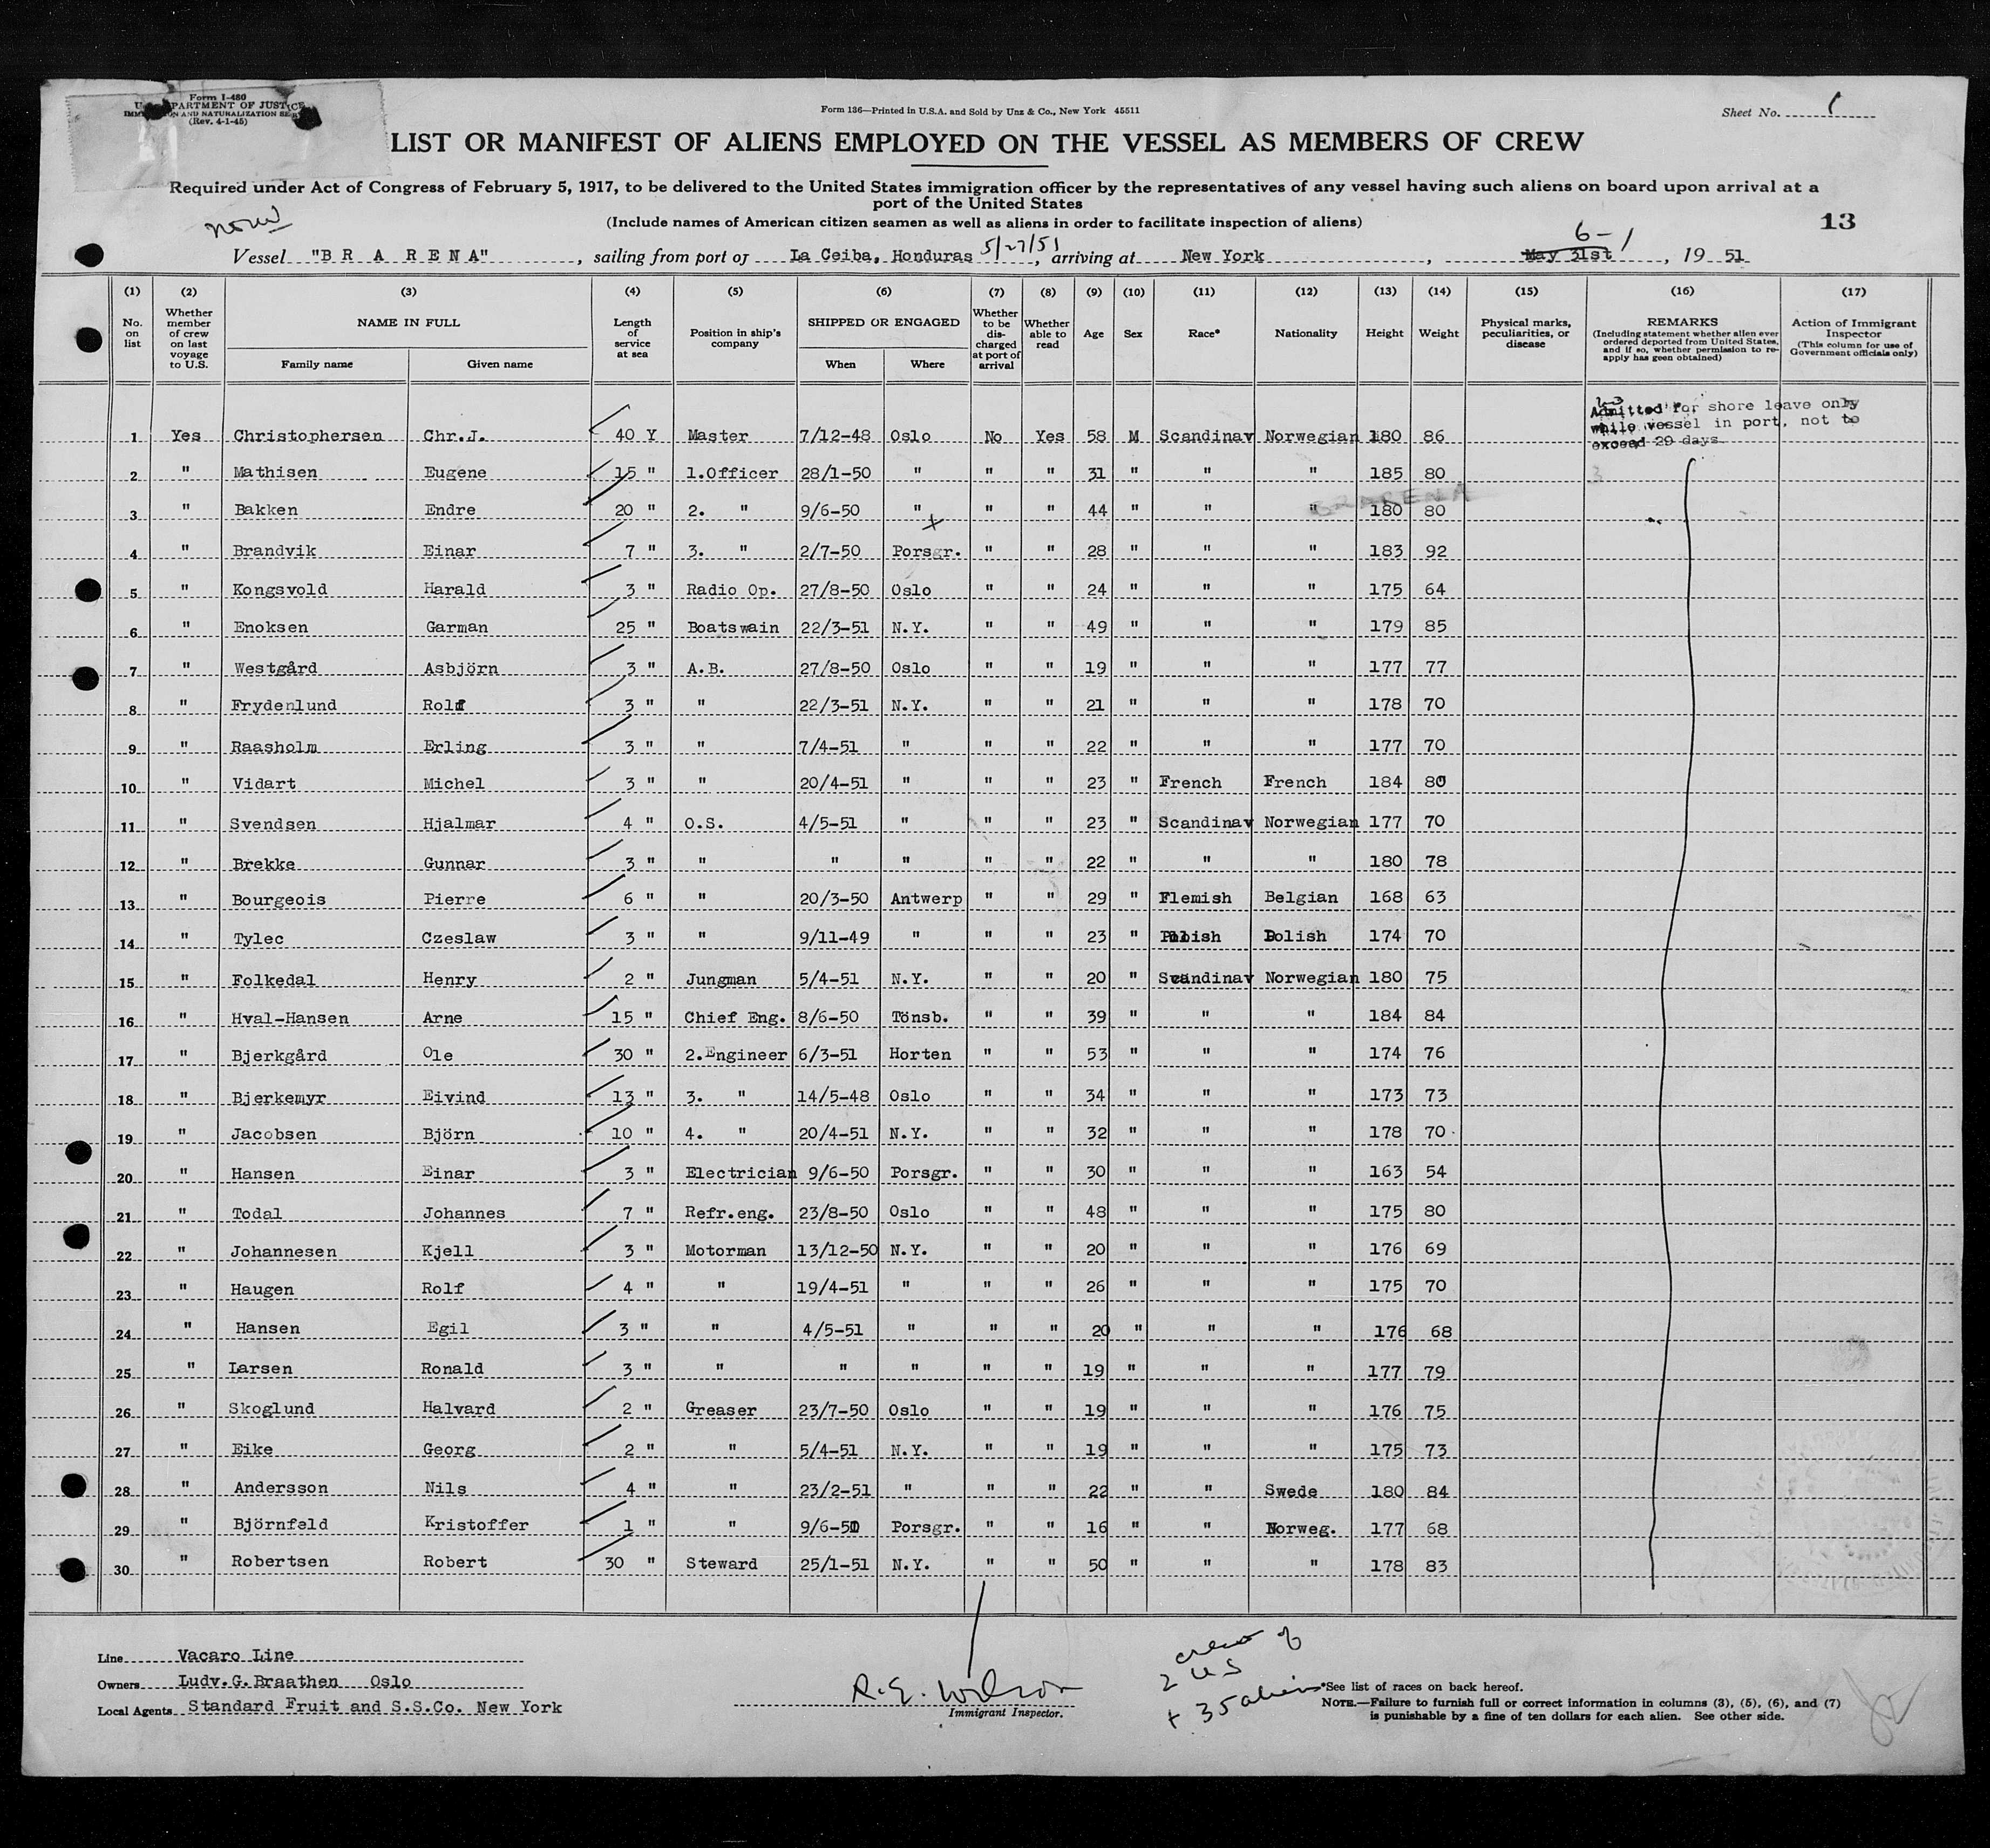 Form I-480
U. S. DEPARTMENT OF JUSTICE
IMMIGRATION AND NATURALIZATION SERVICE
(Rev. 4-1-45)
Form 136—Printed in U.S.A. and Sold by Unz & Co., New York 45511
Sheet No. 1
LIST OR MANIFEST OF ALIENS EMPLOYED ON THE VESSEL AS MEMBERS OF CREW
Required under Act of Congress of February 5, 1917, to be delivered to the United States immigration officer by the representatives of any vessel having such aliens on board upon arrival at a
port of the United States
(Include names of American citizen seamen as well as aliens in order to facilitate inspection of aliens)
13
Vessel "B R A RENA", sailing from port of La Ceiba, Honduras 5/27/51, arriving at New York, May 31st 6-1, 19 51
(1) (2) (3) (4) (5) (6) (7) (8) (9) (10) (11) (12) (13) (14) (15) (16) (17)
No. on list
Whether member of crew on last voyage to U.S.
NAME IN FULL
Family name Given name
Length of service at sea
Position in ship's company
SHIPPED OR ENGAGED
When Where
Whether to be discharged at port of arrival
Whether able to read
Age
Sex
Race*
Nationality
Height
Weight
Physical marks, peculiarities, or disease
REMARKS
(Including statement whether alien ever ordered deported from United States, and if so, whether permission to re-apply has been obtained)
Action of Immigrant Inspector
(This column for use of Government officials only)
Admitted for shore leave only
while vessel in port, not to
exceed 29 days
1 Yes Christophersen Chr.J. 40 Y Master 7/12-48 Oslo No Yes 58 M Scandinav Norwegian 180 86
2 " Mathisen Eugene 15 " 1.Officer 28/1-50 " " " 31 " " " 185 80
BRARENA
3 " Bakken Endre 20 " 2. " 9/6-50 " " " 44 " " " 180 80
4 " Brandvik Einar 7 " 3. " 2/7-50 Porsgr. " " 28 " " " 183 92
5 " Kongsvold Harald 3 " Radio Op. 27/8-50 Oslo " " 24 " " " 175 64
6 " Enoksen Garman 25 " Boatswain 22/3-51 N.Y. " " 49 " " " 179 85
7 " Westgård Asbjörn 3 " A.B. 27/8-50 Oslo " " 19 " " " 177 77
8 " Frydenlund Rolf 3 " " 22/3-51 N.Y. " " 21 " " " 178 70
9 " Raasholm Erling 3 " " 7/4-51 " " " 22 " " " 177 70
10 " Vidart Michel 3 " " 20/4-51 " " " 23 " French French 184 80
11 " Svendsen Hjalmar 4 " O.S. 4/5-51 " " " 23 " Scandinav Norwegian 177 70
12 " Brekke Gunnar 3 " " " " " " 22 " " " 180 78
13 " Bourgeois Pierre 6 " " 20/3-50 Antwerp " " 29 " Flemish Belgian 168 63
14 " Tylec Czeslaw 3 " " 9/11-49 " " " 23 " Polish Polish 174 70
15 " Folkedal Henry 2 " Jungman 5/4-51 N.Y. " " 20 " Scandinav Norwegian 180 75
16 " Hval-Hansen Arne 15 " Chief Eng. 8/6-50 Tönsb. " " 39 " " " 184 84
17 " Bjerkgård Ole 30 " 2.Engineer 6/3-51 Horten " " 53 " " " 174 76
18 " Bjerkemyr Eivind 13 " 3. " 14/5-48 Oslo " " 34 " " " 173 73
19 " Jacobsen Björn 10 " 4. " 20/4-51 N.Y. " " 32 " " " 178 70
20 " Hansen Einar 3 " Electrician 9/6-50 Porsgr. " " 30 " " " 163 54
21 " Todal Johannes 7 " Refr.eng. 23/8-50 Oslo " " 48 " " " 175 80
22 " Johannesen Kjell 3 " Motorman 13/12-50 N.Y. " " 20 " " " 176 69
23 " Haugen Rolf 4 " " 19/4-51 " " " 26 " " " 175 70
24 " Hansen Egil 3 " " 4/5-51 " " " 20 " " " 176 68
25 " Larsen Ronald 3 " " " " " " 19 " " " 177 79
26 " Skoglund Halvard 2 " Greaser 23/7-50 Oslo " " 19 " " " 176 75
27 " Eike Georg 2 " " 5/4-51 N.Y. " " 19 " " " 175 73
28 " Andersson Nils 4 " " 23/2-51 " " " 22 " " Swede 180 84
29 " Björnfeld Kristoffer 1 " " 9/6-50 Porsgr. " " 16 " " Norweg. 177 68
30 " Robertsen Robert 30 " Steward 25/1-51 N.Y. " " 50 " " " 178 83
Line Vacaro Line
Owners Ludv.G.Braathen Oslo
Local Agents Standard Fruit and S.S.Co. New York
R.E. Wilson
Immigrant Inspector.
crew of
2 US
+ 35 aliens
*See list of races on back hereof.
NOTE.—Failure to furnish full or correct information in columns (3), (5), (6), and (7)
is punishable by a fine of ten dollars for each alien. See other side.